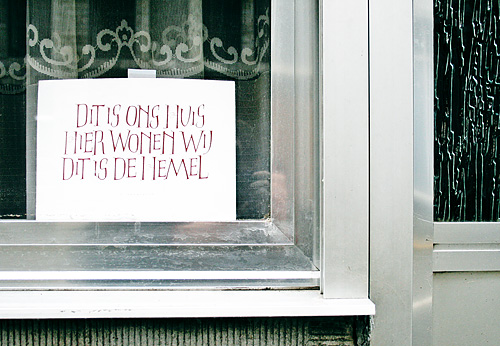 DIT IS ONS HUIS
HIER WONEN WIJ
DIT IS DE HEMEL